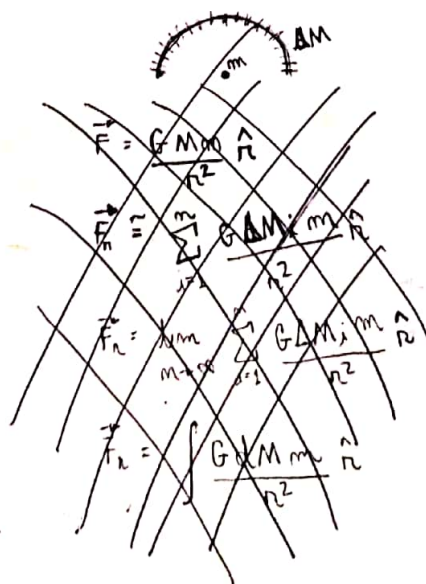 ΔM
m
F⃗ = G M m / r² r̂
F⃗ₙ ≅ Σ_{i=1}^{n} G ΔMᵢ m / r² r̂
F⃗ₙ = lim_{n→∞} Σ_{i=1}^{n} G ΔMᵢ m / r² r̂
F⃗ₙ = ∫ G dM m / r² r̂